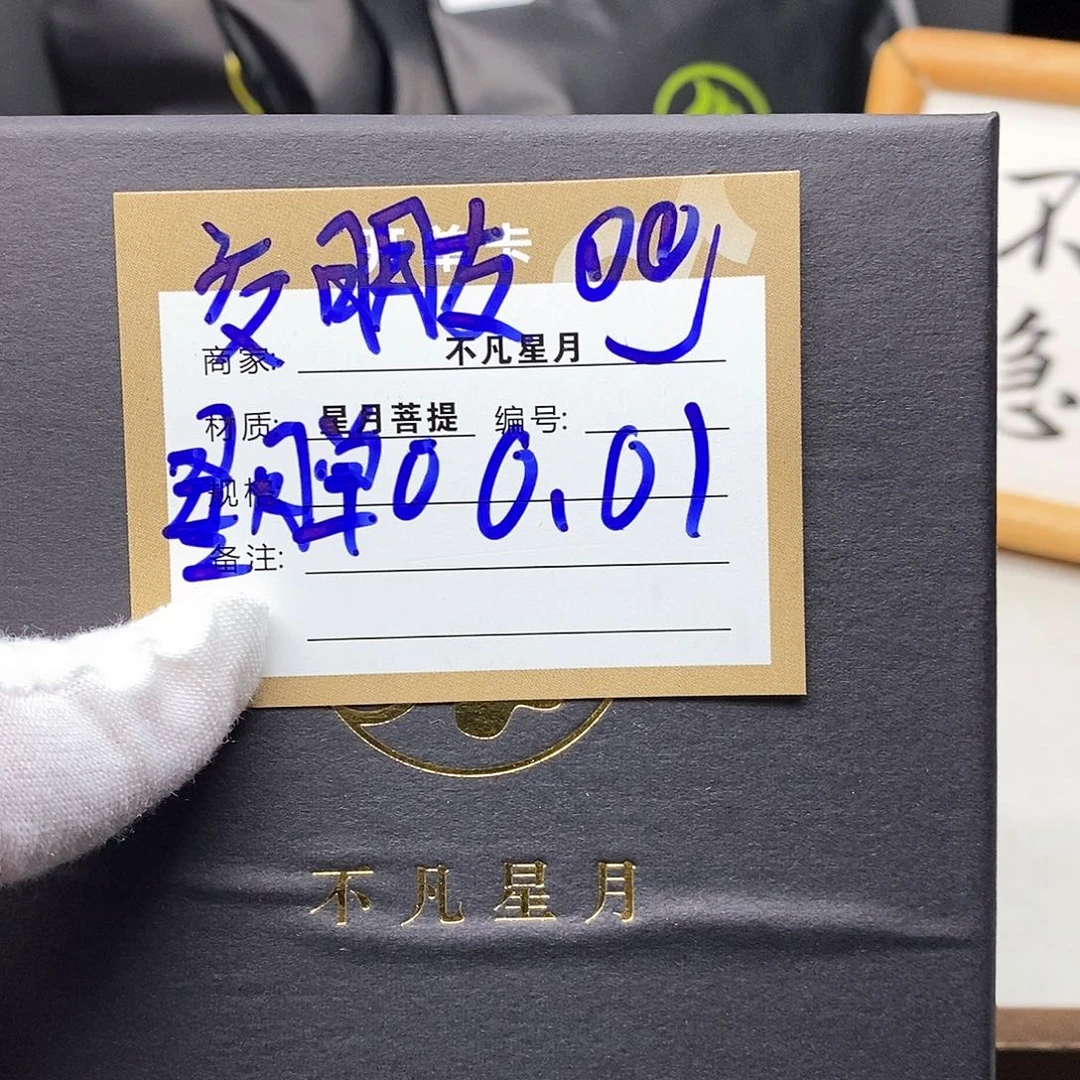 交朋友
商家: 不凡星月
材质: 星月菩提 编号:
星月单 0.01
规格:
备注:
不凡星月
不
急